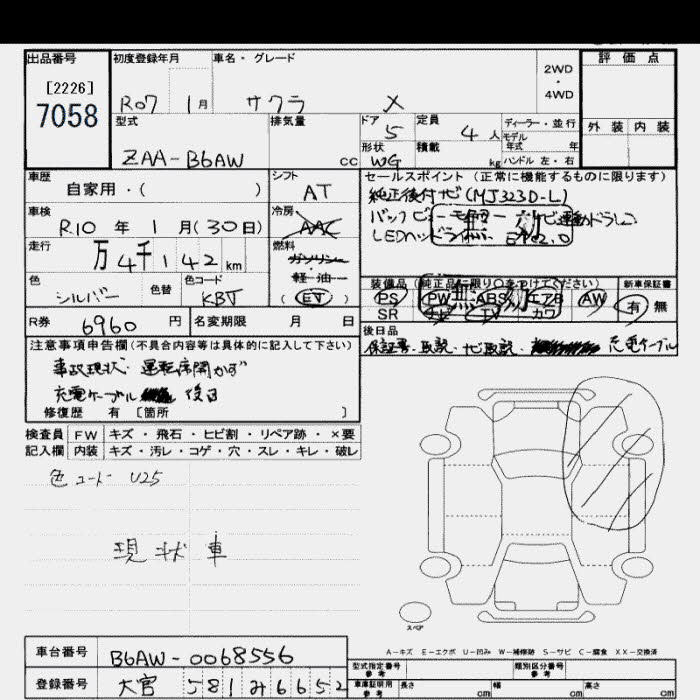 出品番号 初度登録年月 車名・グレード 2WD・4WD 評価点
[2226]
7058 R07 1月 サクラ X
型式 排気量 ドア 定員 ディーラー・並行 外装 内装
5 4人 モデル年式 年
ZAA-B6AW cc 形状 WG 積載 kg ハンドル 左・右
車歴 シフト セールスポイント (正常に機能するものに限ります)
自家用・( ) AT 純正後付ナビ(MJ323D-L)
車検 冷房 AAC
R10年 1月(30日) LEDヘッド
走行 燃料 ガソリン・軽油
万4千142km (EV)
色 色替 色コード 装備品 (純正品に限り○をつけてください) 新車保証書
シルバー KBV PS PW ABS エアB AW 有 無
SR ナビ TV カワ
R券 6960円 名変期限 月 日 後日品
保証書・取説・ナビ取説・ 充電ケーブル
注意事項申告欄(不具合内容等は具体的に記入して下さい)
事故現状 運転席開かず
充電ケーブル 後日
修復歴 有 [箇所 ]
検査員 FW キズ・飛石・ヒビ割・リペア跡・×要
記入欄 内装 キズ・汚レ・コゲ・穴・スレ・キレ・破レ
色コード U25
現状車
スペア
A-キズ E-エクボ U-凹み W-補修跡 S-サビ C-腐食 XX-交換済
車台番号 B6AW-0068556 型式指定番号 参考 類別区分番号 参考
登録番号 大宮 581 み 6652 車庫証明用 参考 長さ cm 幅 cm 高さ cm